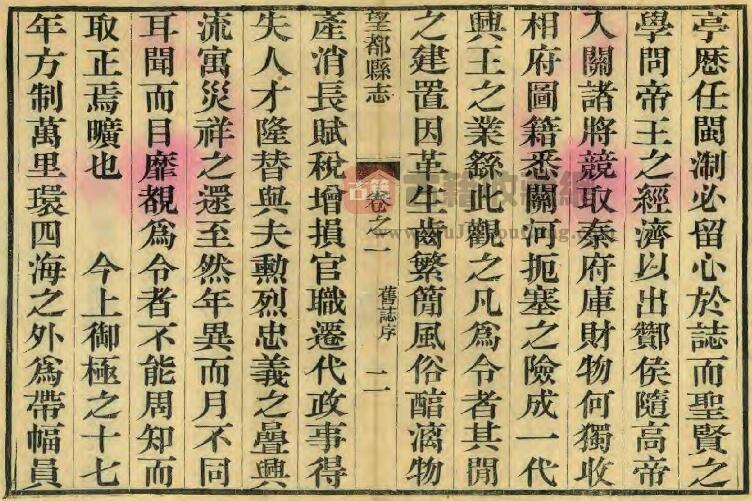 亭歷任閩淛必留心於誌而聖賢之
學問帝王之經濟以出酇侯隨高帝
入關諸將競取秦府庫財物何獨收
相府圖籍悉關河扼塞之險成一代
興王之業繇此觀之凡爲令者其閒
之建置因革生齒繁簡風俗醕漓物
望都縣志
卷之一
舊誌序
二
產消長賦稅增損官職遷代政事得
失人才隆替與夫勳烈忠義之疊興
流寓災祥之還至然年異而月不同
耳聞而目靡覩爲令者不能周知而
取正焉曠也 今上御極之十七
年方制萬里環四海之外爲帶幅員